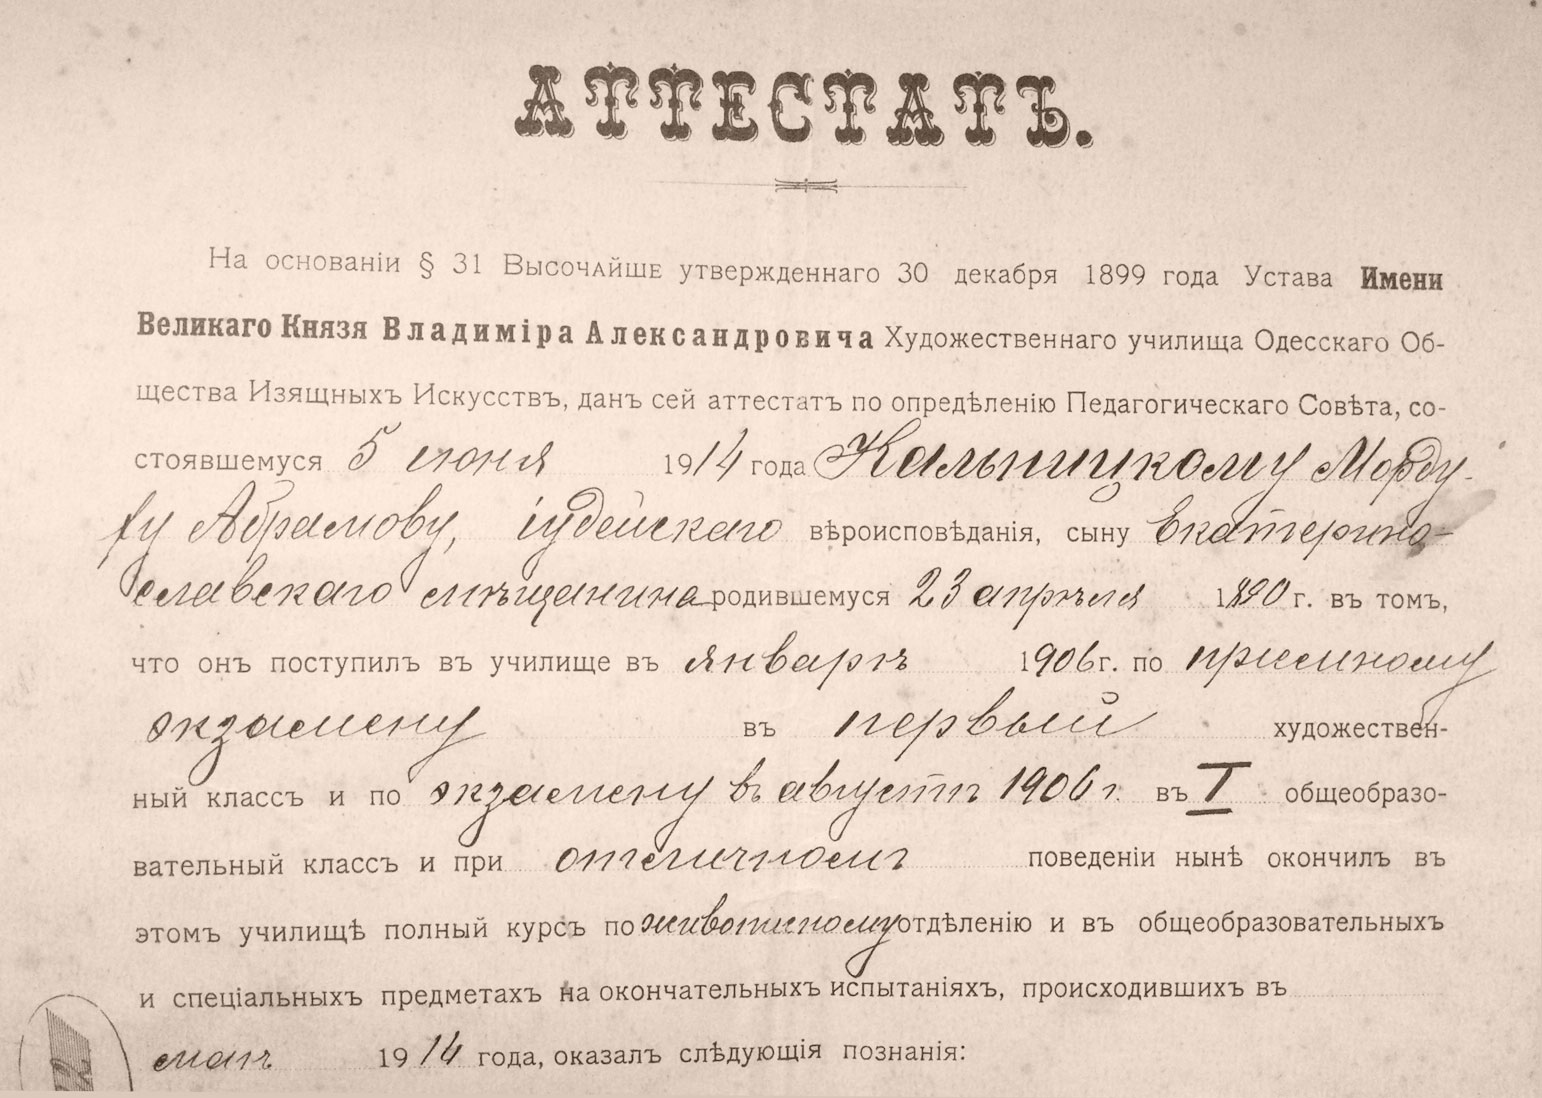 АТТЕСТАТЪ.
На основаніи § 31 Высочайше утвержденнаго 30 декабря 1899 года Устава Имени
Великаго Князя Владиміра Александровича Художественнаго училища Одесскаго Об-
щества Изящныхъ Искусствъ, данъ сей аттестатъ по опредѣленію Педагогическаго Совѣта, со-
стоявшемуся 5 июня 1914 года Кальницкому Морду-
ху Абрамову, іудейскаго вѣроисповѣданія, сыну Екатерино-
славскаго мѣщанина родившемуся 23 апрѣля 1890 г. въ томъ,
что онъ поступилъ въ училище въ январѣ 1906 г. по приемному
экзамену въ первый художествен-
ный классъ и по экзамену въ августѣ 1906 г. въ I общеобразо-
вательный классъ и при отличномъ поведеніи нынѣ окончилъ въ
этомъ училищѣ полный курсъ по живописному отдѣленію и въ общеобразовательныхъ
и спеціальныхъ предметахъ на окончательныхъ испытаніяхъ, происходившихъ въ
маѣ 1914 года, оказалъ слѣдующія познанія: